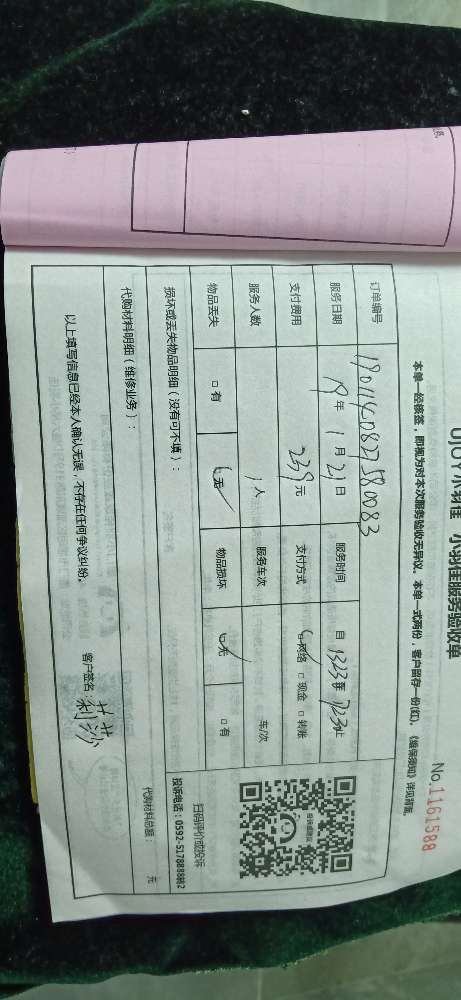 小羽佳服务验收单
No.1161588
本单一经核签，即视为对本次服务验收无异议。本单一式两份，客户留存一份(红)。《维保须知》详见背面。
订单编号 1901140827580083
服务日期 19年 1月 21日 服务时间 自 止
支付费用 239元 支付方式 网络 □现金 □转账
服务人数 1人 服务车次 车/次
物品丢失 □有 无 物品损坏 无 □有
扫码评价或投诉
损坏或丢失物品明细（没有可不填）：
代购材料明细（维修业务）：
代购材料总额： 元
以上填写信息已经本人确认无误，不存在任何争议纠纷。
客户签名：